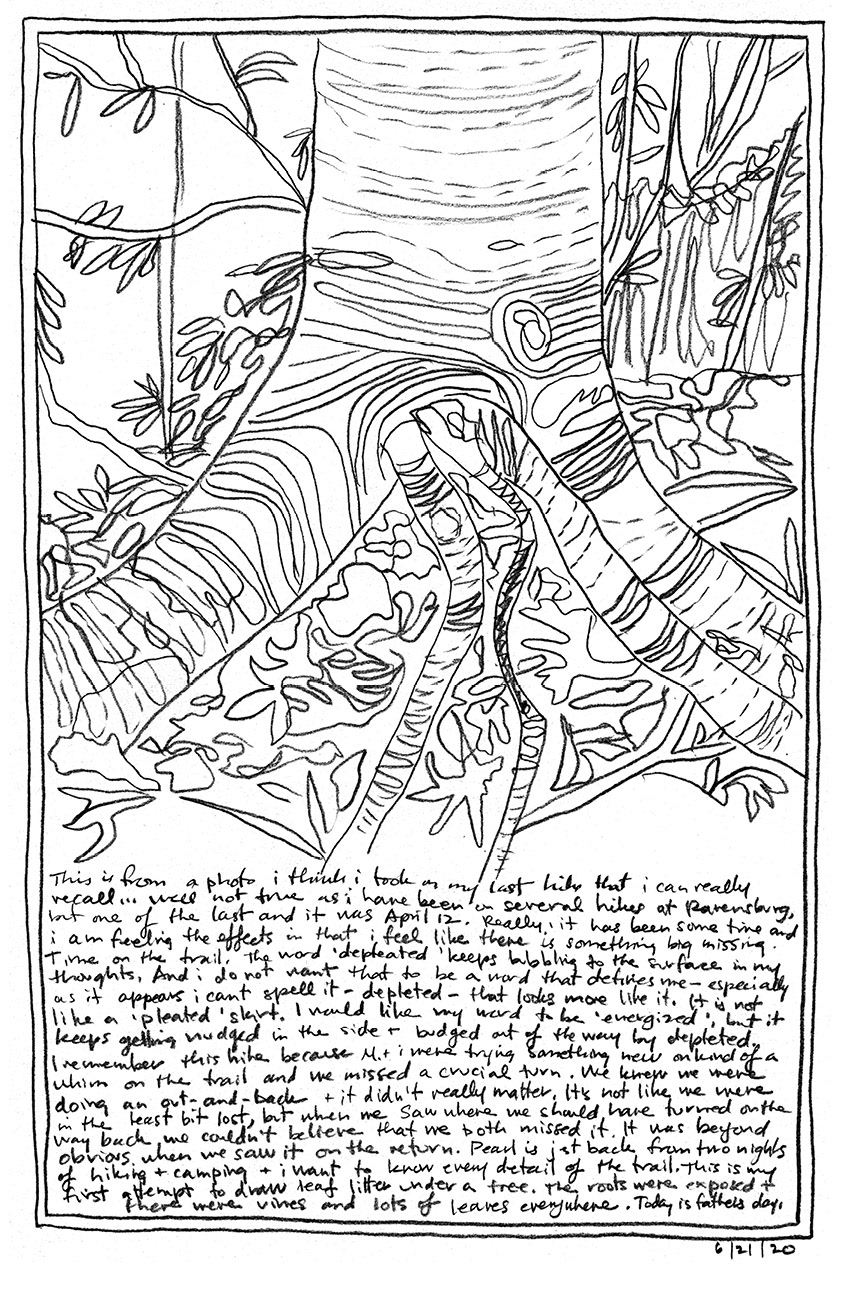 This is from a photo i think i took on my last hike that i can really
recall... well not true as i have been on several hikes at Ravensburg,
but one of the last and it was April 12. Really, it has been some time and
i am feeling the effects in that i feel like there is something big missing.
Time on the trail. The word 'depleated' keeps bubbling to the surface in my
thoughts. And i do not want that to be a word that defines me - especially
as it appears i cant spell it - depleted - that looks more like it. It is not
like a 'pleated' skirt. I would like my word to be 'energized', but it
keeps getting nudged in the side + budged out of the way by depleted.
I remember this hike because M. + i were trying something new on kind of a
whim on the trail and we missed a crucial turn. We knew we were
doing an out-and-back + it didn't really matter. It's not like we were
in the least bit lost, but when we saw where we should have turned on the
way back, we couldn't believe that we both missed it. It was beyond
obvious when we saw it on the return. Pearl is jst back from two nights
of hiking + camping + i want to know every detail of the trail. This is my
first attempt to draw leaf litter under a tree. The roots were exposed +
there were vines and lots of leaves everywhere. Today is fathers day.
6/21/20